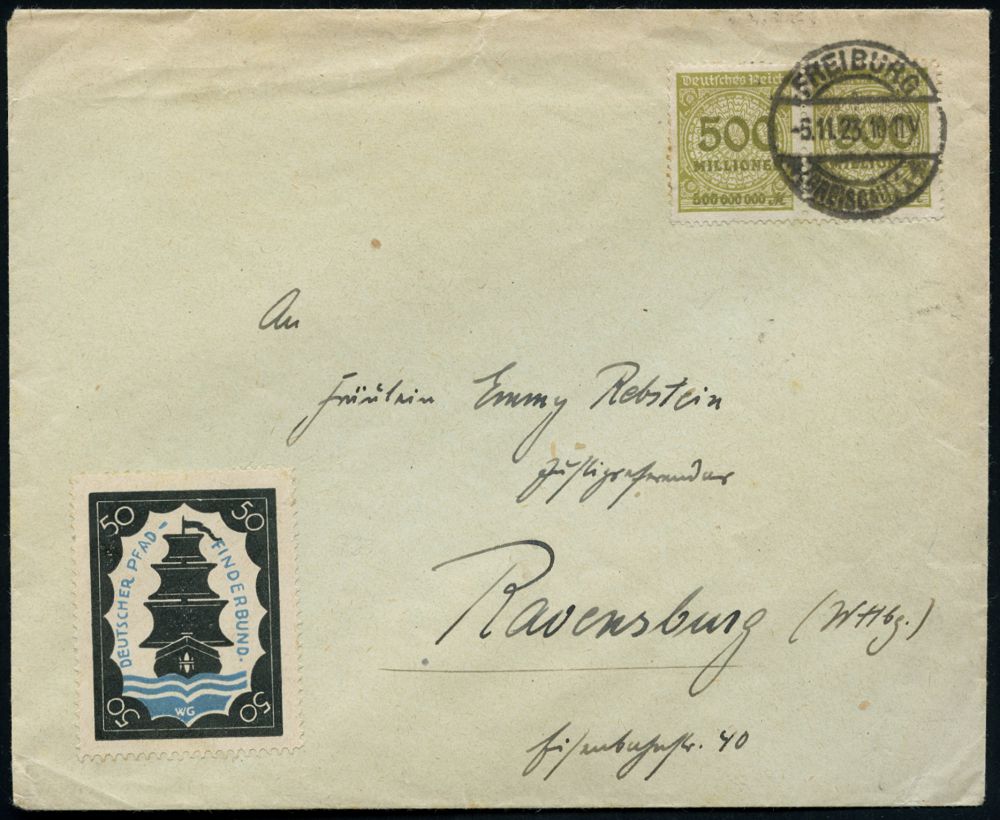 Deutsches Reich
500
MILLIONEN
500 000 000 M
500
MILLIONEN
FREIBURG
-5.11.23.10-11V
BREISGAU
An
Fräulein Emmy Rebstein
Justizreferendar
Ravensburg (Wttbg.)
Eisenbahnstr. 40
50 50
DEUTSCHER PFAD-
FINDERBUND.
WG
50 50